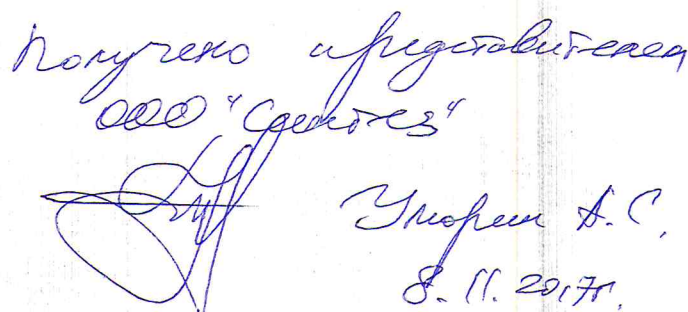 Получено представителем
ООО "Синтез"
А.С.
8.11.2017г.